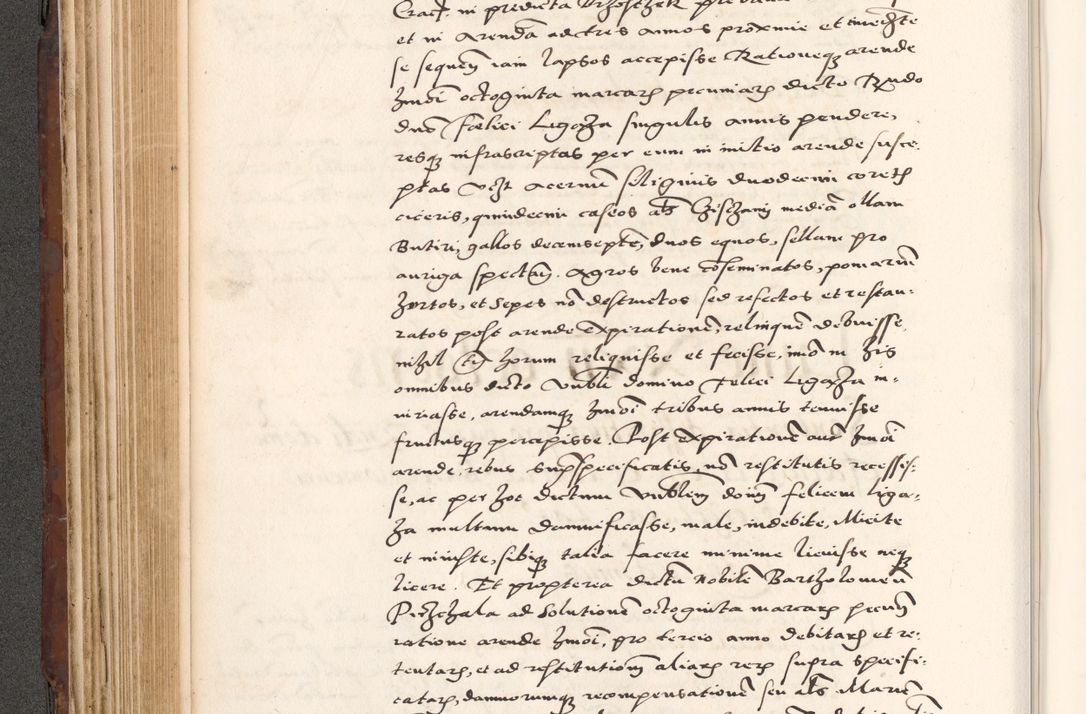 et in Arendã ad tres annos proxime et imedte
se sequeñ iam lapsos accepisse Rationeqz arende
hmõi octoginta marcarz pecuniarz dicto Rndo
dno Fœlici Ligęza singulis annis pendere,
resqz infrascriptas per eum in initio arende susce-
ptas vizt acervũ siliginis duodecim coretz
ciceris, quindecim caseos als mediã ollam
Butiri, gallos decemsepte, duos equos, sellam pro
auriga spectañ. Agros bene cõseminatos, pomariũ
hortos, et sepes nõ destructos sed refectos et restau-
ratos post arende Expirationẽ, relinquere debuisse,
nihil horum reliquisse et fecisse, imõ in his
omnibus dicto Vnbli domino Felici Ligęza in-
iuriasse, arendamqz hmõi tribus annis tenuisse
fructusqz percepisse. Post Expirationẽ aut hmõi
arende, rebus supspecificatis, nõ restitutis recessis-
se, ac per hoc dictum Vnblem dom̃ felicem Liga-
za multum damnificasse, male, indebite, illicite
et iniuste, sibiqz talia facere minime licuisse neqz
licere. Et propterea dictũ Nobilẽ Bartholomeũ
ad Solutionẽ octoginta marcarz pecuñ
ratione arende hmõi, pro tercio anno debitarz et re-
tentarz, et ad restitutionẽ aliarz rerz supra specifi-
catarz, damnorumqz recompensationẽ seu als